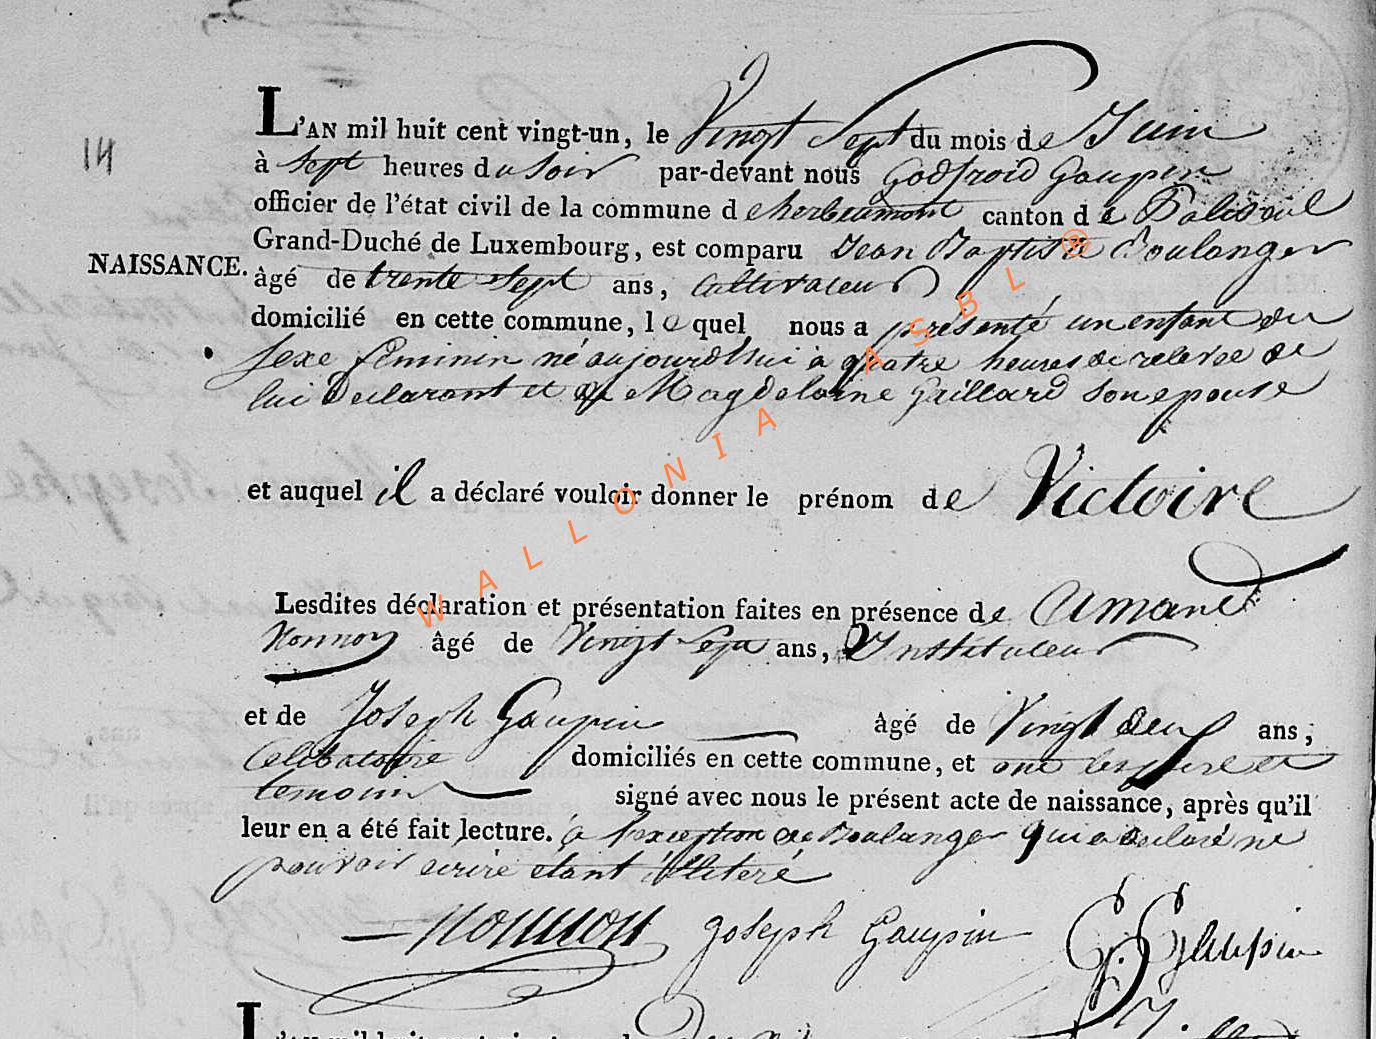 L'AN mil huit cent vingt-un, le Vingt Sept du mois de Juin
14
à Sept heures du Soir par-devant nous Godfroid Gaupin
officier de l'état civil de la commune d'herbeumont canton de Paliseul
Grand-Duché de Luxembourg, est comparu Jean Baptiste Boulanger
NAISSANCE.
âgé de trente Sept ans, Cultivateur
domicilié en cette commune, lequel nous a présenté un enfant du
Sexe féminin né aujourd'hui à quatre heures de relevée de
lui Declarant et de Magdelaine Gaillard son epouse
et auquel il a déclaré vouloir donner le prénom de Victoire
Lesdites déclaration et présentation faites en présence de Amand
Nonnon âgé de Vingt Sept ans, Instituteur
et de Joseph Gaupin âgé de Vingt deux ans,
Celibatoire domiciliés en cette commune, et ont les
temoins signé avec nous le présent acte de naissance, après qu'il
leur en a été fait lecture. à l'exception de Boulanger qui a declaré ne
pouvoir ecrire etant illiteré
Nonnon Joseph Gaupin G. Gaupin
L'AN mil huit cent vingt-un, le
WALLONIA ASBL ®